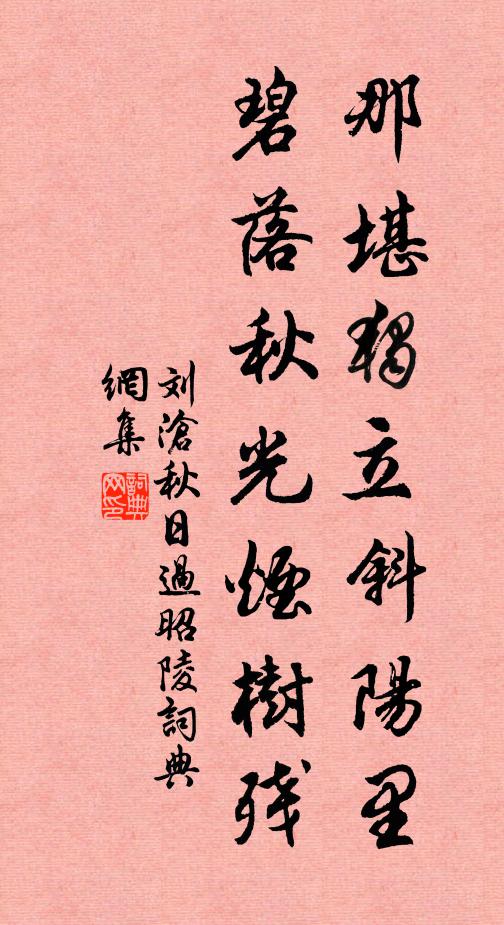 那堪獨立斜陽里
碧落秋光煙樹残
刘滄秋日過昭陵詞典
網集
詞典
网印